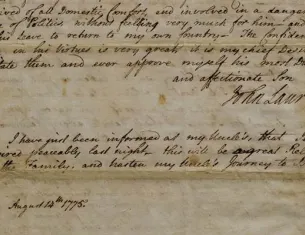 ived of all Domestic Comfort, and involved in a danger
of Politics without feeling very much for him—
leave to return to my own Country. The Confidence
in his Virtues is very great, it is my chief Desire
tate them and ever approve myself his most D
and affectionate Son
John Law
I have just been informed at my Uncle's that
ired peaceably last night, this will be a great Rel
the Family, and hasten my Uncle's Journey to
August 14th 1775.